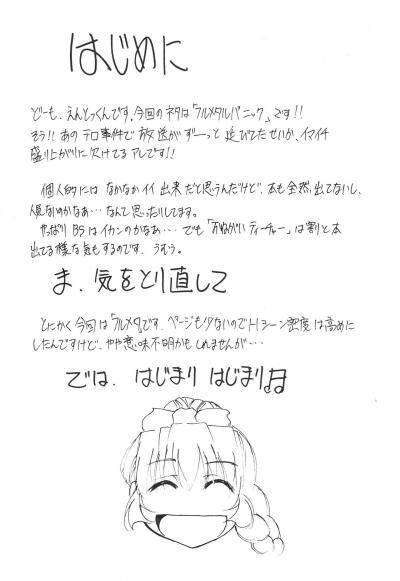 はじめに
どーも、えんとっくんです。今回のネタは「フルメタルパニック」です!!
そう!! あのテロ事件で放送がずーっと延びてたせいか、イマイチ
盛り上がりに欠けてるアレです!!
個人的にはなかなかイイ出来だと思うんだけど、本も全然出てないし、
人気ないのかなぁ…なんて思ったりしてます。
やっぱりBSはイカンのかなぁ… でも「おねがいティーチャー」は割と本
出てる様な気もするのです、うむう。
ま、気をとり直して
とにかく今回は「フルメタ」です、ページも少ないのでHシーン密度は高めに
したんですけど、やや意味不明かもしれませんが…
では、はじまりはじまり♫